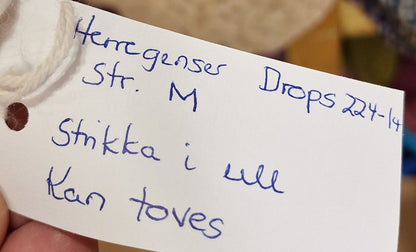 Herregenser Drops 224-14
Str. M
Strikka i ull
Kan toves